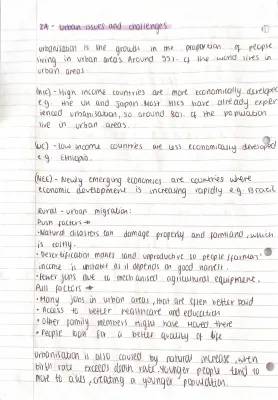 2A - Urban issues and challenges
urbanisation is the growth in the proportion of people
living in urban areas. Around 55% of the world lives in
urban areas
(HIC) - High income countries are more economically develope
e.g. the UK and Japan. Most HICs have already exper
ienced urbanisation, so around 80% of the population
live in urban areas.
(LIC) - low income countries are less economically developed
e.g. Ethiopia.
(NEE) - Newly emerging economies are countries where
economic development is increasing rapidly e.g. Brazil
Rural - urban migration:
Push factors →
•Natural disasters can damage property and farmland, which
is costly.
•Desertification makes land unproductive so people/farmers'
income is unstable as it depends on good harvest.
•Fewer jobs due to mechanised agricultural equipment.
Pull factors →
•Many jobs in urban areas, that are often better paid
• Access to better healthcare and education
• Other family members might have moved there
• People look for a better quality of life
Urbanisation is also caused by natural increase, when
birth rate exceeds death rate. Younger people tend to
move to cities, creating a younger population.